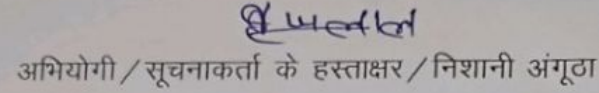 अभियोगी / सूचनाकर्ता के हस्ताक्षर / निशानी अंगूठा